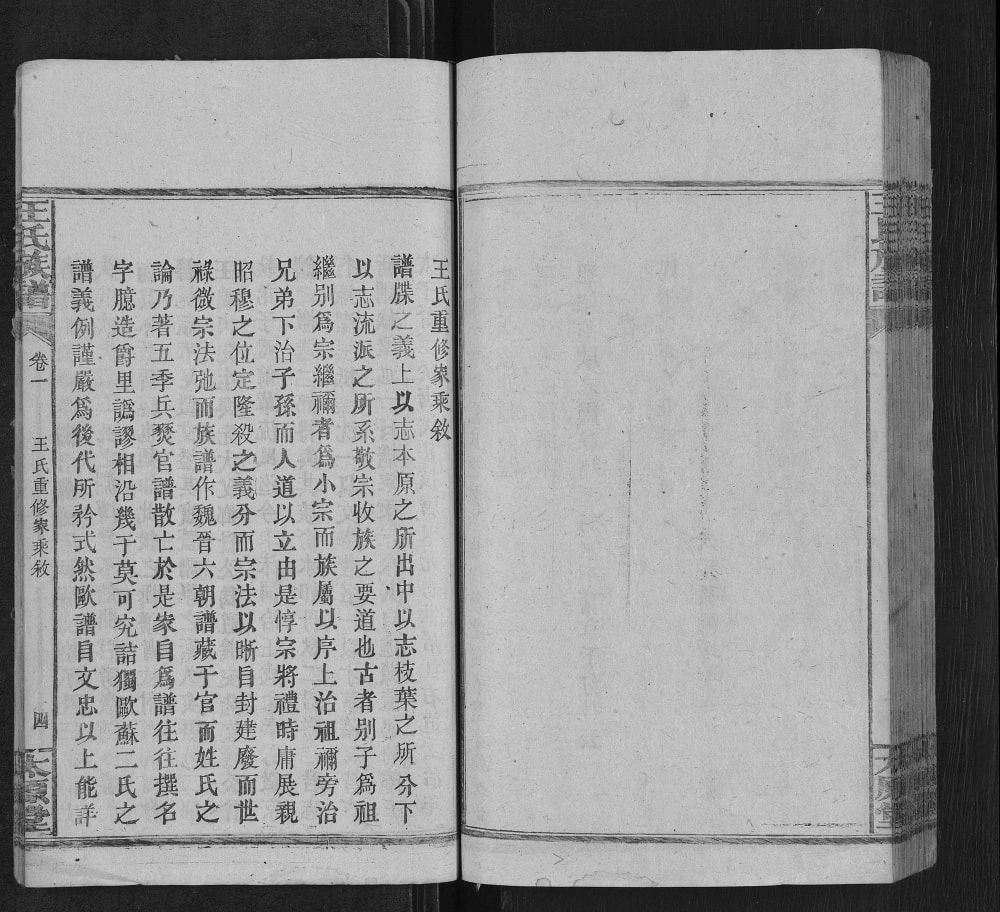 王氏重修家乘敘
譜牒之義上以志本原之所出中以志枝葉之所分下
以志流派之所系敬宗收族之要道也古者别子爲祖
繼别爲宗繼禰者爲小宗而族屬以序上治祖禰旁治
兄弟下治子孫而人道以立由是惇宗將禮時庸展親
昭穆之位定隆殺之義分而宗法以晰自封建廢而世
祿微宗法弛而族譜作魏晉六朝譜藏于官而姓氏之
論乃著五季兵燹官譜散亡於是家自爲譜往往撰名
字臆造爵里譌謬相沿幾于莫可究詰獨歐蘇二氏之
譜義例謹嚴爲後代所矜式然歐譜自文忠以上能詳
王氏族譜
卷一
王氏重修家乘敘
四
太原堂